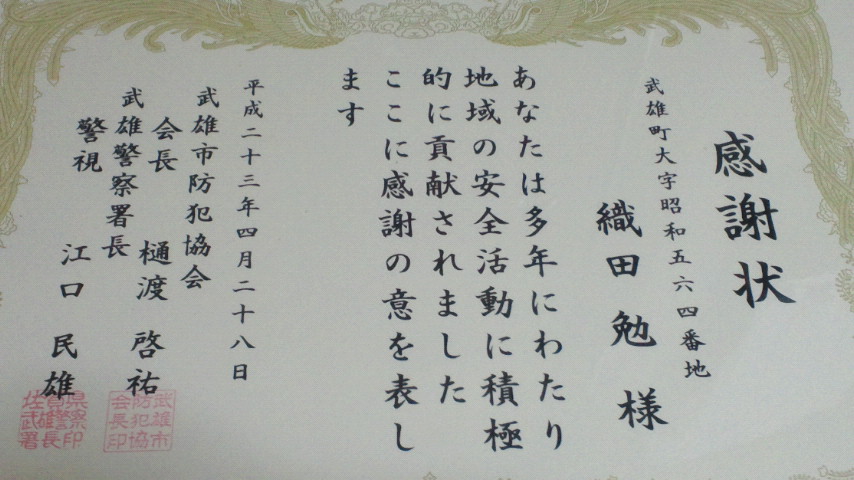 感謝状
武雄町大字昭和五六四番地
織田 勉 様
あなたは多年にわたり
地域の安全活動に積極
的に貢献されました
ここに感謝の意を表し
ます
平成二十三年四月二十八日
武雄市防犯協会
会長 樋渡 啓祐
武雄警察署長
警視 江口 民雄
武雄市
防犯協
会長印
佐賀県
武雄警察
署長印